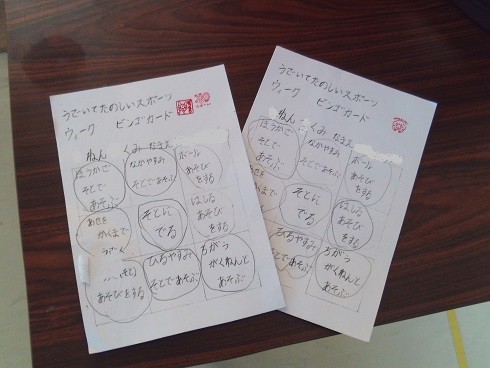 うごいてたのしいスポーツ
ウィーク ビンゴカード
ねん くみ なまえ
ほうかご
そとで
あそぶ
なかやすみ
そとであそぶ
ボール
あそび
をする
あせを
かくまで
うごく
そとに
でる
はしる
あそび
をする
あそびをする
ひるやすみ
そとであそぶ
ちがう
がくねんと
あそぶ
うごいてたのしいスポーツ
ウィーク ビンゴカード
ねん くみ なまえ
ほうかご
そとで
あそぶ
なかやすみ
そとであそぶ
ボール
あそび
をする
そとに
でる
はしる
あそび
をする
ひるやすみ
そとであそぶ
ちがう
がくねんと
あそぶ